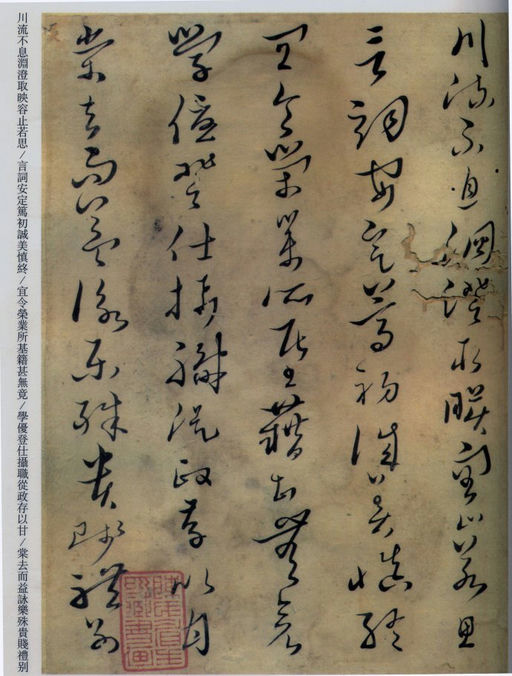 川流不息淵澄取暎容止若思
言詞安定篤初誠美慎終
宜令榮業所基藉甚無竟
學優登仕攝職從政存以甘
棠去而益詠樂殊貴賤禮別
川流不息淵澄取映容止若思/言詞安定篤初誠美慎終/宜令榮業所基籍甚無竟/學優登仕攝職從政存以甘/棠去而益詠樂殊貴賤禮別